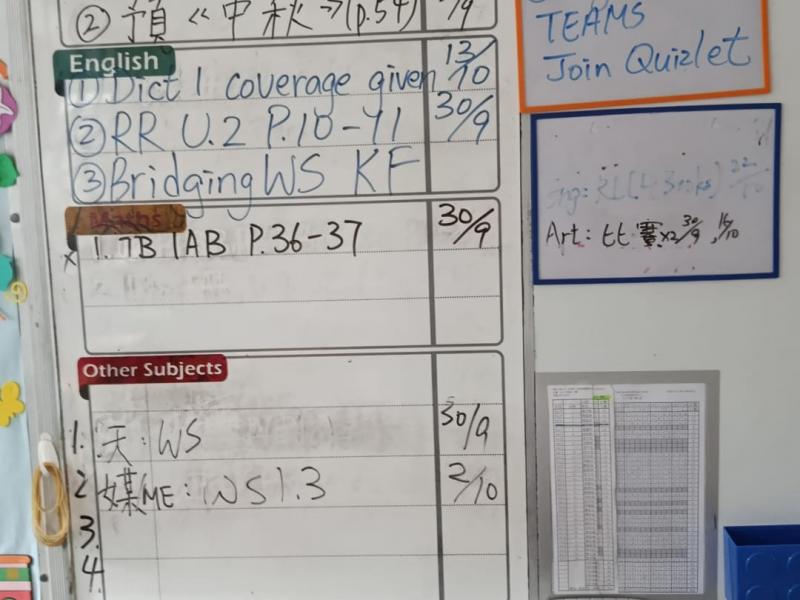 ② 預 《中秋》(p.54) /9
English
① Dict 1 coverage given 13/10
② RR U.2 P.10-11 30/9
③ Bridging WS KF
Maths
1. 7B 1AB P.36-37 30/9
Other Subjects
1. 天: WS 30/9
2 媒ME: WS1.3 2/10
3.
4.
TEAMS
Join Quizlet
Art: 比賽x2 30/9, 16/10